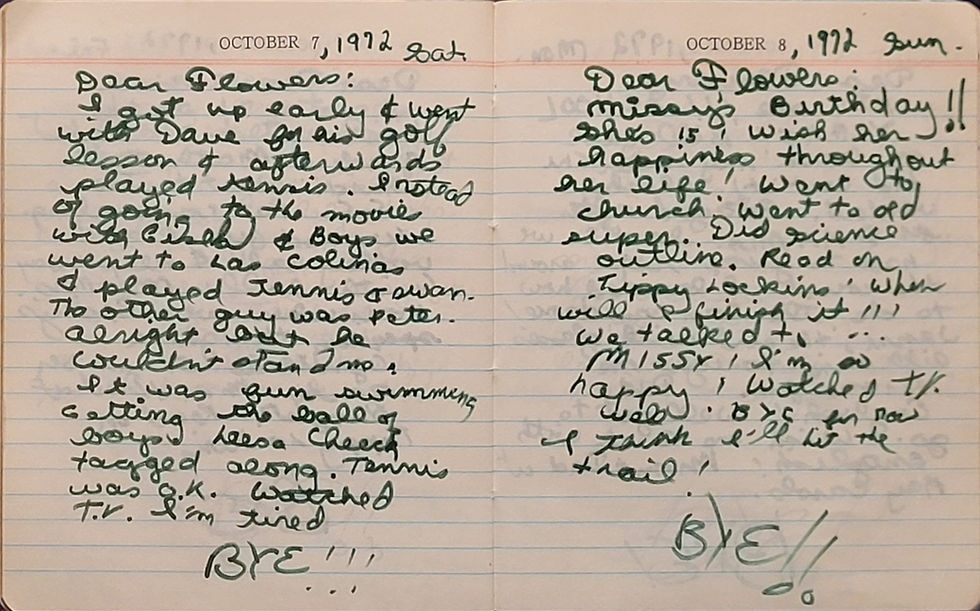 OCTOBER 7, 1972 Sat.
Dear Flowers:
I got up early & went
with Dave for his golf
lesson & afterwards
played tennis. Instead
of going to the movies
with & Boys we
went to Las Colinas
I played Tennis & swam.
The other guy was Peter.
alright but he
couldn't stand me.
It was fun swimming
getting the ball of
boys. Leesa Cheek
tagged along. Tennis
was o.k. Watched
T.V. I'm tired
BYE!!!
OCTOBER 8, 1972 Sun.
Dear Flowers:
missy's Birthday!!
she's 15! wish her
happiness throughout
her life! Went to
church. Went to old
super. Did science
outline. Read on
Tippy Lockins! when
will I finish it!!!
We talked to ...
MISSY! I'm so
happy! Watched T.V.
well. BYE for now
I think I'll hit the
trail!
BYE!!